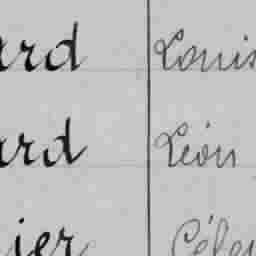 ard Louis
ard Léon
ier Céles